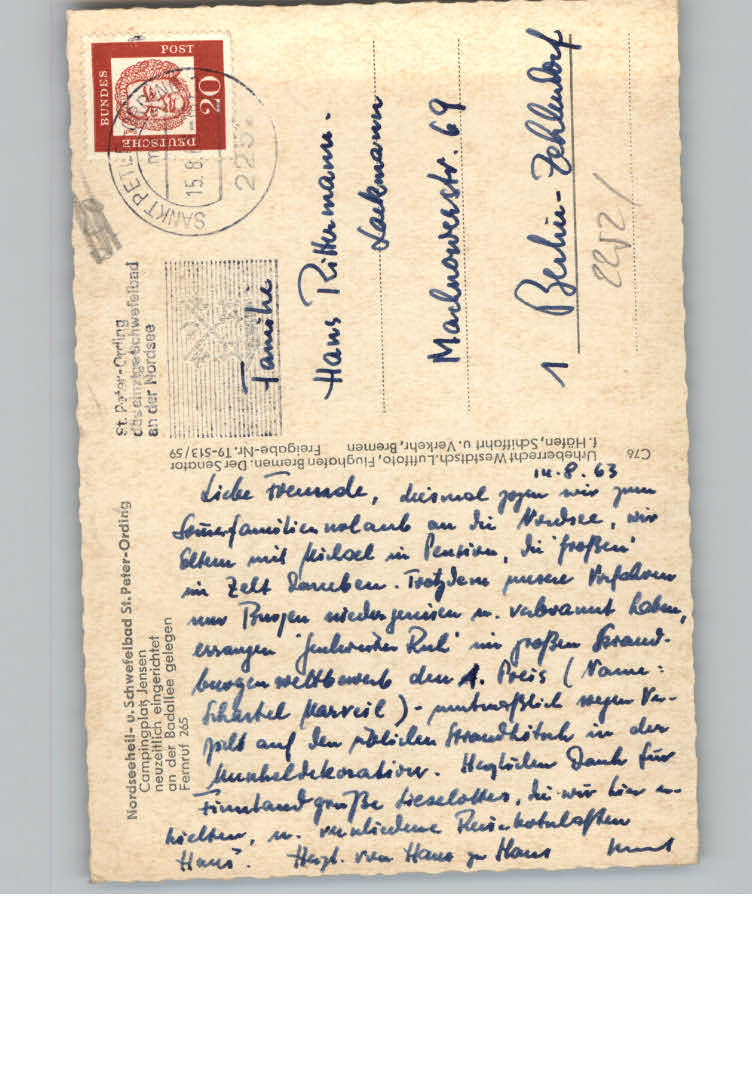 Nordseeheil- u. Schwefelbad St. Peter-Ording
Campingplatz Jensen
neuzeitlich eingerichtet
an der Badallee gelegen
Fernruf 265
14.8.63
Liebe Freunde, diesmal zogen wir zum
Sommerfamilienurlaub an die Nordsee, wir
Eltern mit Michael in Pension, die "Großen"
im Zelt daneben. Trotzdem unsere
nur Burgen niedergerissen u. verbrannt haben,
errangen im großen Strand-
burgenwettbewerb den 1. Preis (Name:
) - mutmaßlich wegen Ver-
zicht auf den üblichen Strandkitsch in der
Muscheldekoration. Herzlichen Dank für
Finnlandgrüße Lieselottes, die wir hier er-
hielten, u. verschiedene
Haus. Herzl. von Haus zu Haus
Urheberrecht Westdtsch. Luftfoto, Flughafen Bremen. Der Senator
f. Häfen, Schiffahrt u. Verkehr, Bremen Freigabe-Nr. T9-513/59
C76
St. Peter-Ording
das einzige Schwefelbad
an der Nordsee
DEUTSCHE
BUNDES
POST
20
SANKT PETER-ORDING
15.8.
2252
Familie
Hans Rittermann-
Lackmann
Machnowerstr. 69
1 Berlin-Zehlendorf
2252 /